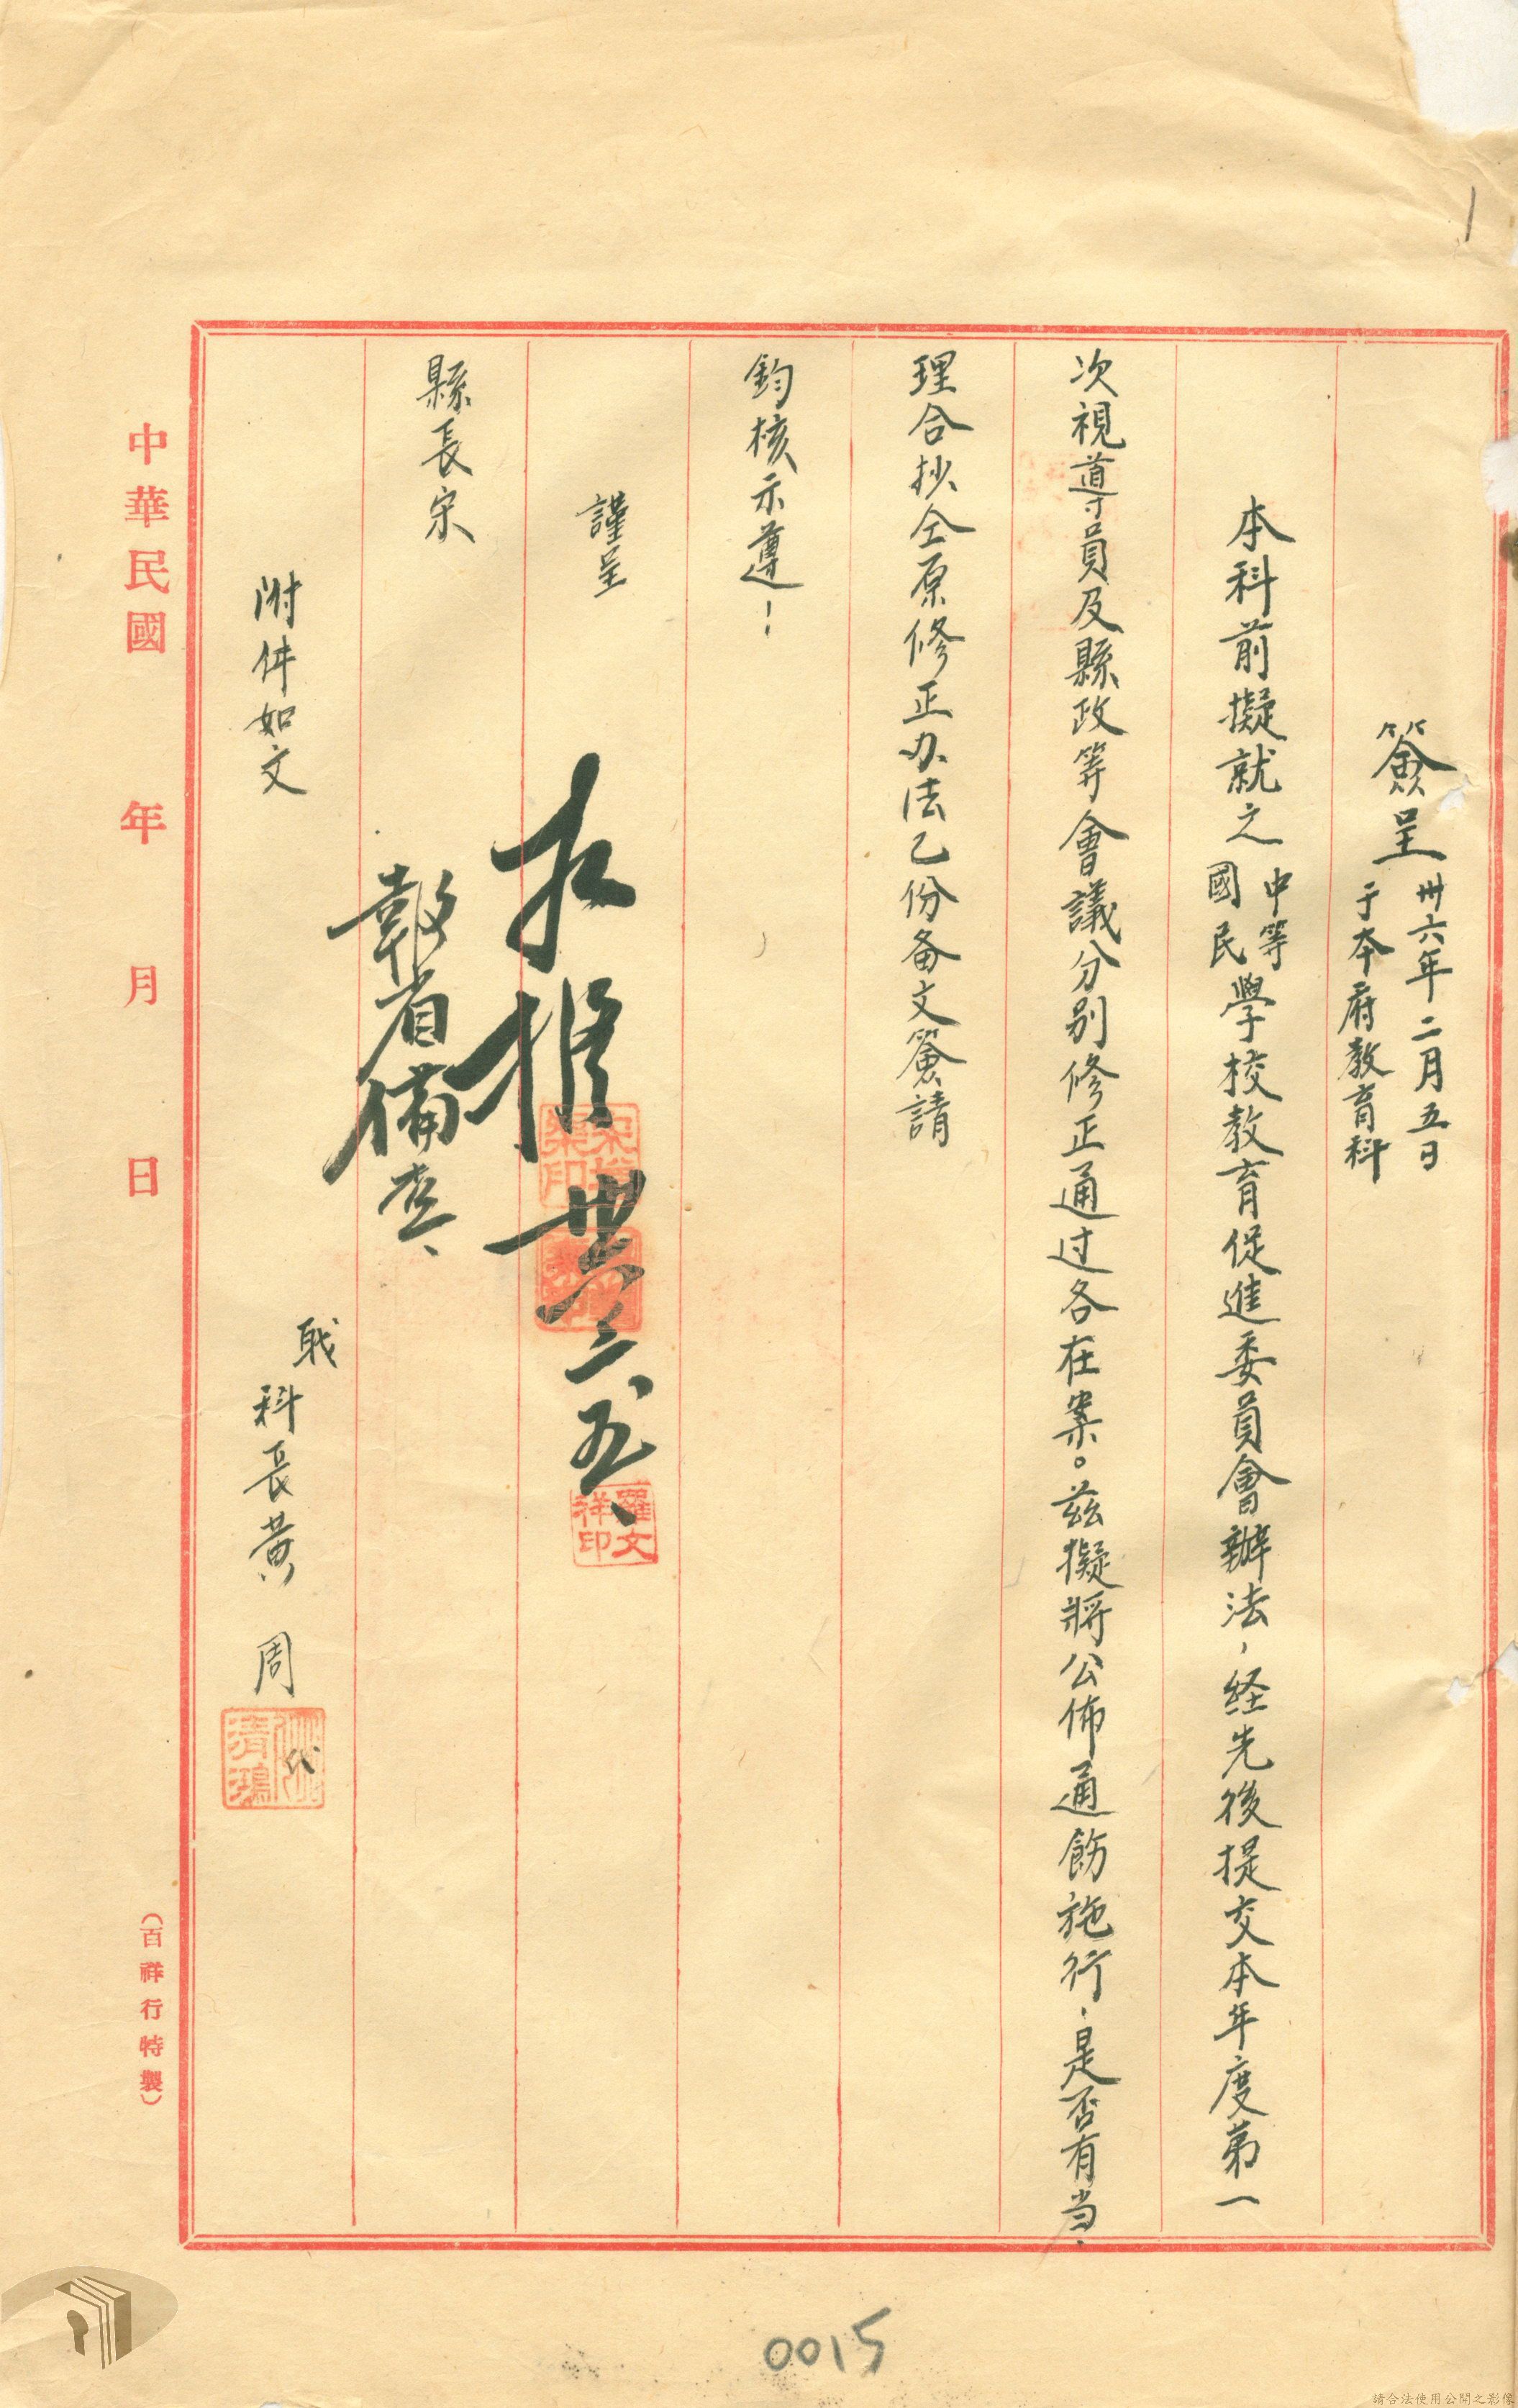 1
簽呈 卅六年二月五日
于本府教育科
本科前擬就之中等國民學校教育促進委員會辦法,経先後提交本年度第一
次視導員及縣政等會議分別修正通过各在案。茲擬將公佈通飭施行,是否有当,
理合抄仝原修正办法乙份备文簽請
鈞核示遵!
謹呈
縣長宋
附件如文
卅六二五
羅文祥印
報省備查、
職科長黃 周代
清鴻
中華民國 年 月 日
(百祥行特製)
0015
請合法使用公開之影像